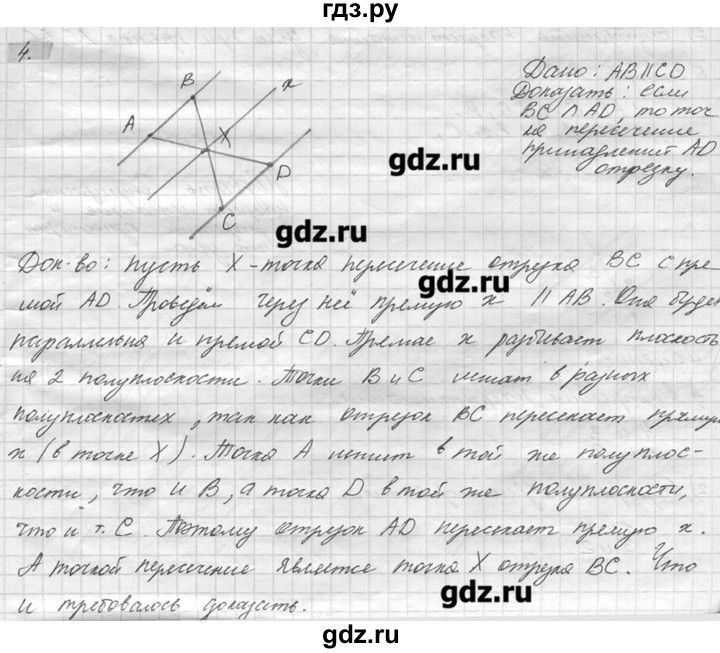 гдз.ру
4.
B
x
A
X
D
C
Дано: AB||CD
Доказать: если
BC ∩ AD, то точ
ка пересечение
принадлежит AD
отрезку.
gdz.ru
gdz.ru
Док-во: пусть X - точка пересечение отрезка BC с пря
мой AD. Проведём через неё прямую x || AB. Она будет
gdz.ru
параллельна и прямой CD. Прямая x разбивает плоскость
на 2 полуплоскости. Точки B и C лежат в разных
полуплоскостях, так как отрезок BC пересекает прямую
x (в точке X). Точка A лежит в той же полуплос-
кости, что и B, а точка D в той же полуплоскости,
что и т. C. Поэтому отрезок AD пересекает прямую x.
А точкой пересечение является точка X отрезка BC. Что
gdz.ru
и требовалось доказать.
gdz.ru